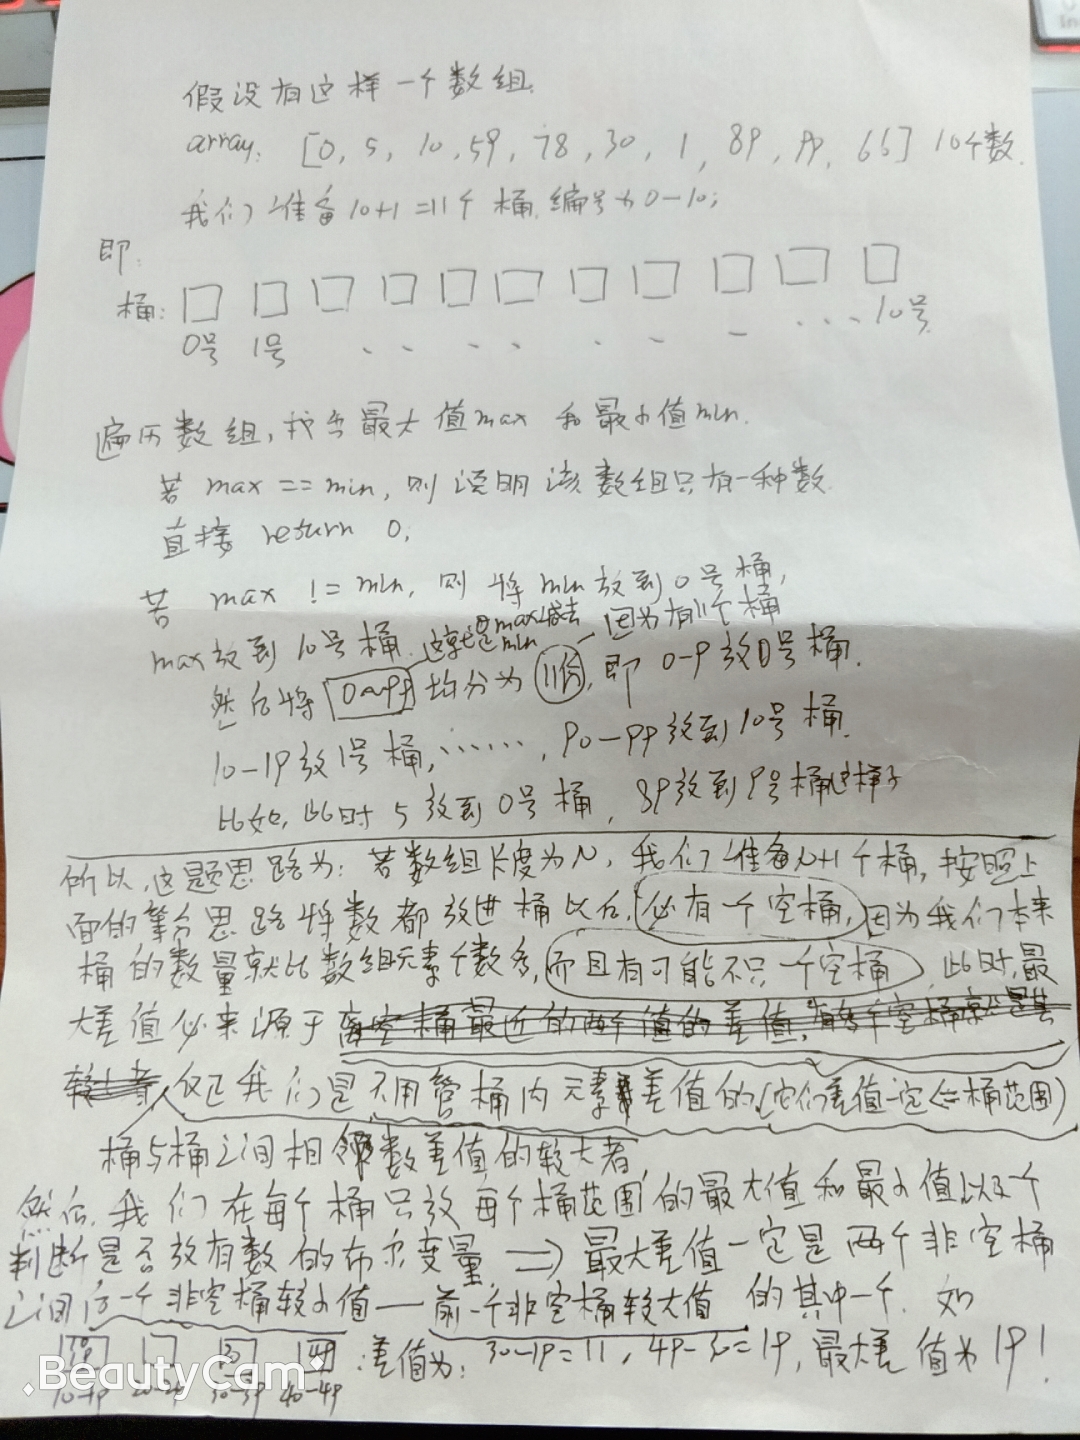 假设有这样一个数组:
array: [0, 5, 10, 59, 78, 30, 1, 89, 99, 66] 10个数.
我们准备10+1=11个桶. 编号为0—10;
即:
桶:
0号 1号 ..... 10号
遍历数组,找出最大值max 和最小值min.
若 max == min, 则说明该数组只有一种数.
直接 return 0;
若 max != min, 则将min放到0号桶,
max放到10号桶. 这就是max减去min 因为有11个桶
然后将 0~99 均分为 11份, 即 0-9放0号桶.
10-19放1号桶, ......, 90-99放到10号桶.
比如, 此时 5 放到0号桶, 89放到9号桶这样子
所以,这题思路为: 若数组长度为N, 我们准备N+1个桶, 按照上
面的等分思路将数都放进桶以后, 必有一个空桶, 因为我们本来
桶的数量就比数组元素个数多, 而且有可能不只一个空桶, 此时,最
大差值必来源于离空桶最近的两个值的差值,
较大者 反正我们是不用管桶内元素差值的,(它们差值一定<=桶范围)
桶与桶之间相邻数差值的较大者
然后, 我们在每个桶只放每个桶范围的最大值和最小值以及个
判断是否放有数的布尔变量. => 最大差值一定是两个非空桶
之间后一个非空桶较小值—前一个非空桶较大值 的其中一个. 如
差值为: 30-19=11, 49-30=19, 最大差值为19!
10-19 40-49
BeautyCam